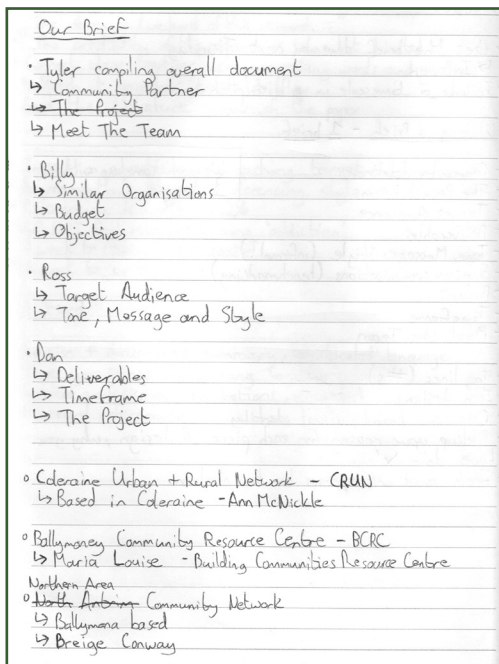 Our Brief
· Tyler compiling overall document
↳ Community Partner
↳ The Project
↳ Meet The Team
· Billy
↳ Similar Organisations
↳ Budget
↳ Objectives
· Ross
↳ Target Audience
↳ Tone, Message and Style
· Dan
↳ Deliverables
↳ Timeframe
↳ The Project
° Coleraine Urban + Rural Network - CRUN
↳ Based in Coleraine - Ann McNickle
° Ballymoney Community Resource Centre - BCRC
↳ Maria Louise - Building Communities Resource Centre
Northern Area
° North Antrim Community Network
↳ Ballymena based
↳ Breige Conway